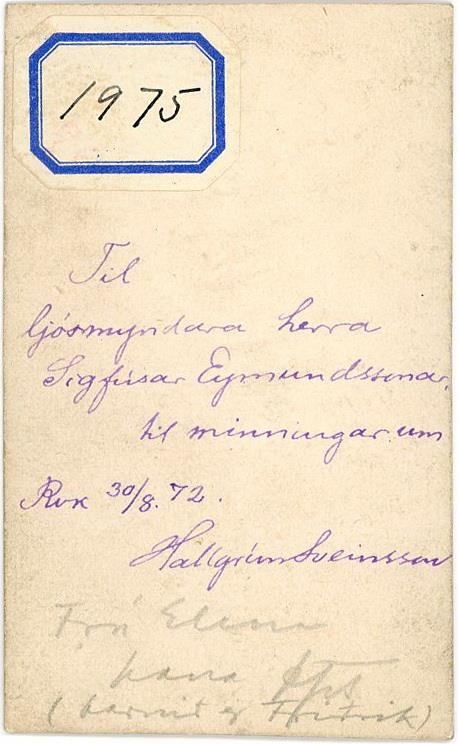 1975
Til
ljósmyndara herra
Sigfúsar Eymundssonar.
til minningar um
Rvk 30/8. 72.
Hallgrím Sveinsson
Frá Elina
hans
(barnið er Friðrik)